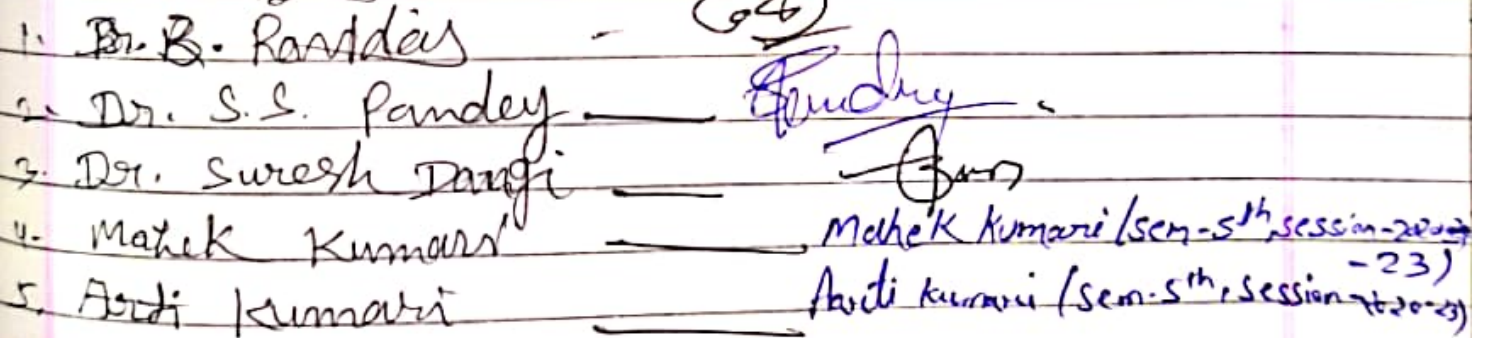 1. Dr. B. Ravidas -
2. Dr. S.S. Pandey —
3. Dr. Suresh Dangi —
4. Mahek Kumari — Mahek Kumari (sem-5th, session-
-23)
5. Arti Kumari — Aarti Kumari (sem-5th, session-2020-23)